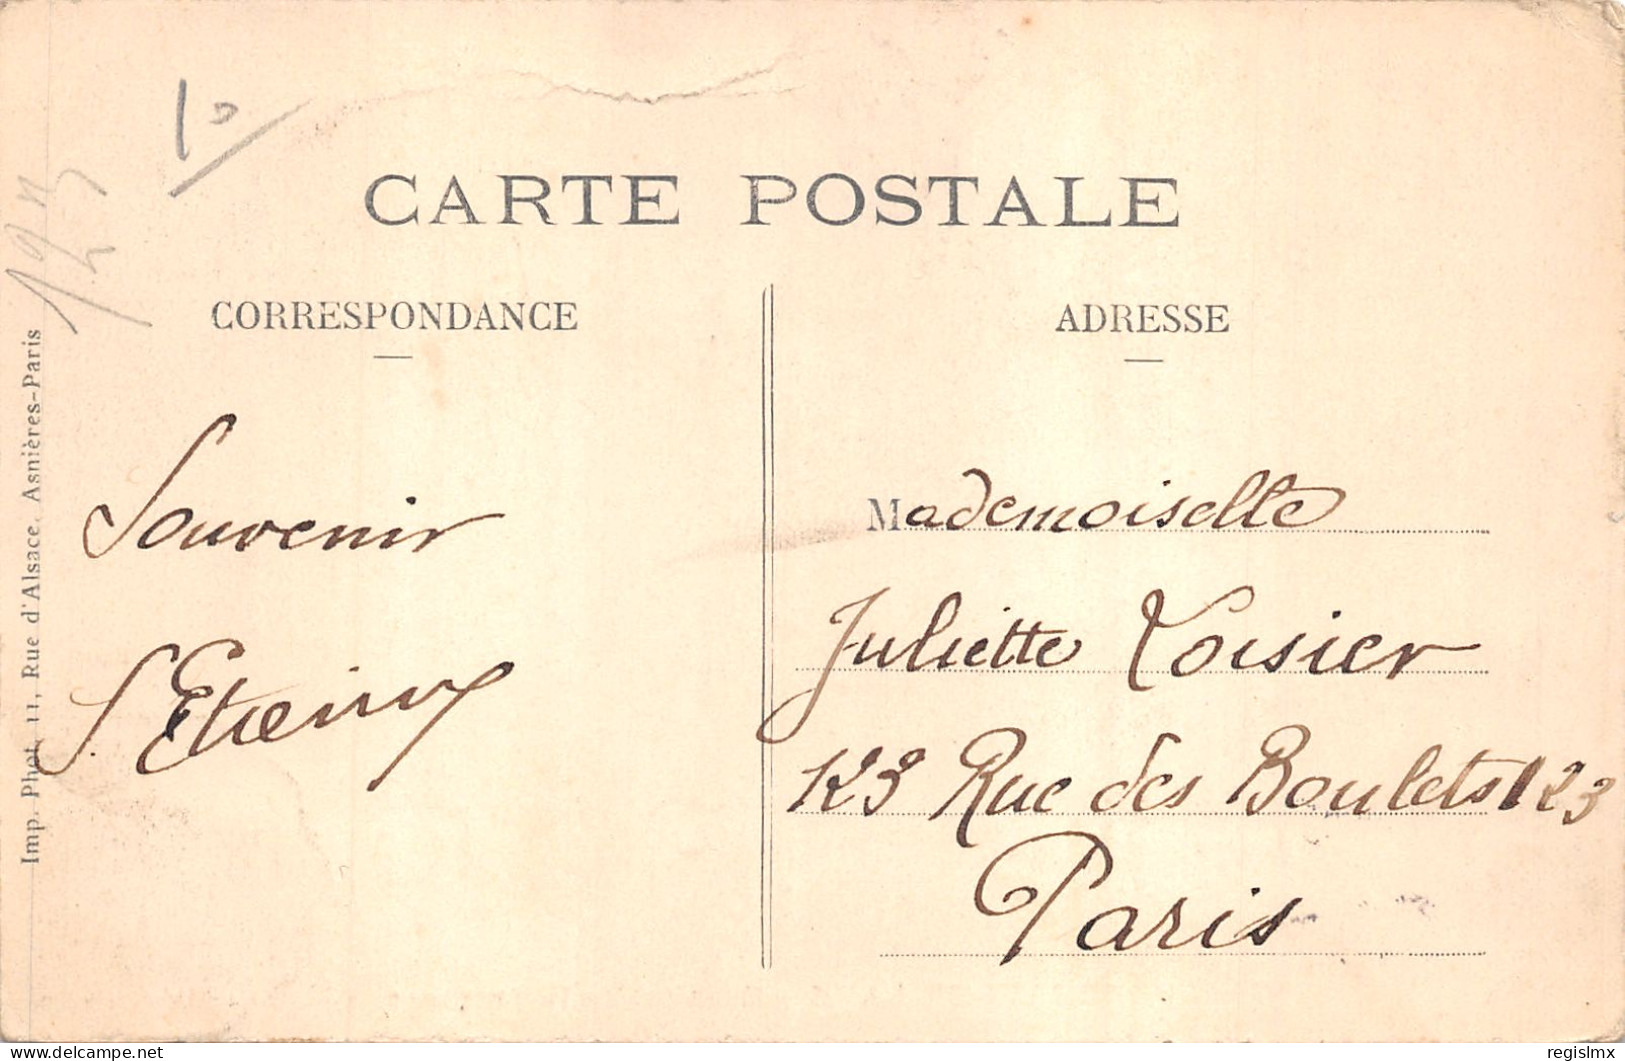 10
CARTE POSTALE
CORRESPONDANCE
ADRESSE
Souvenir
Mademoiselle
Juliette Voisier
123 Rue des Boulets 123
Paris
Imp. Phot. 11, Rue d'Alsace. Asnières-Paris
www.delcampe.net
regislmx